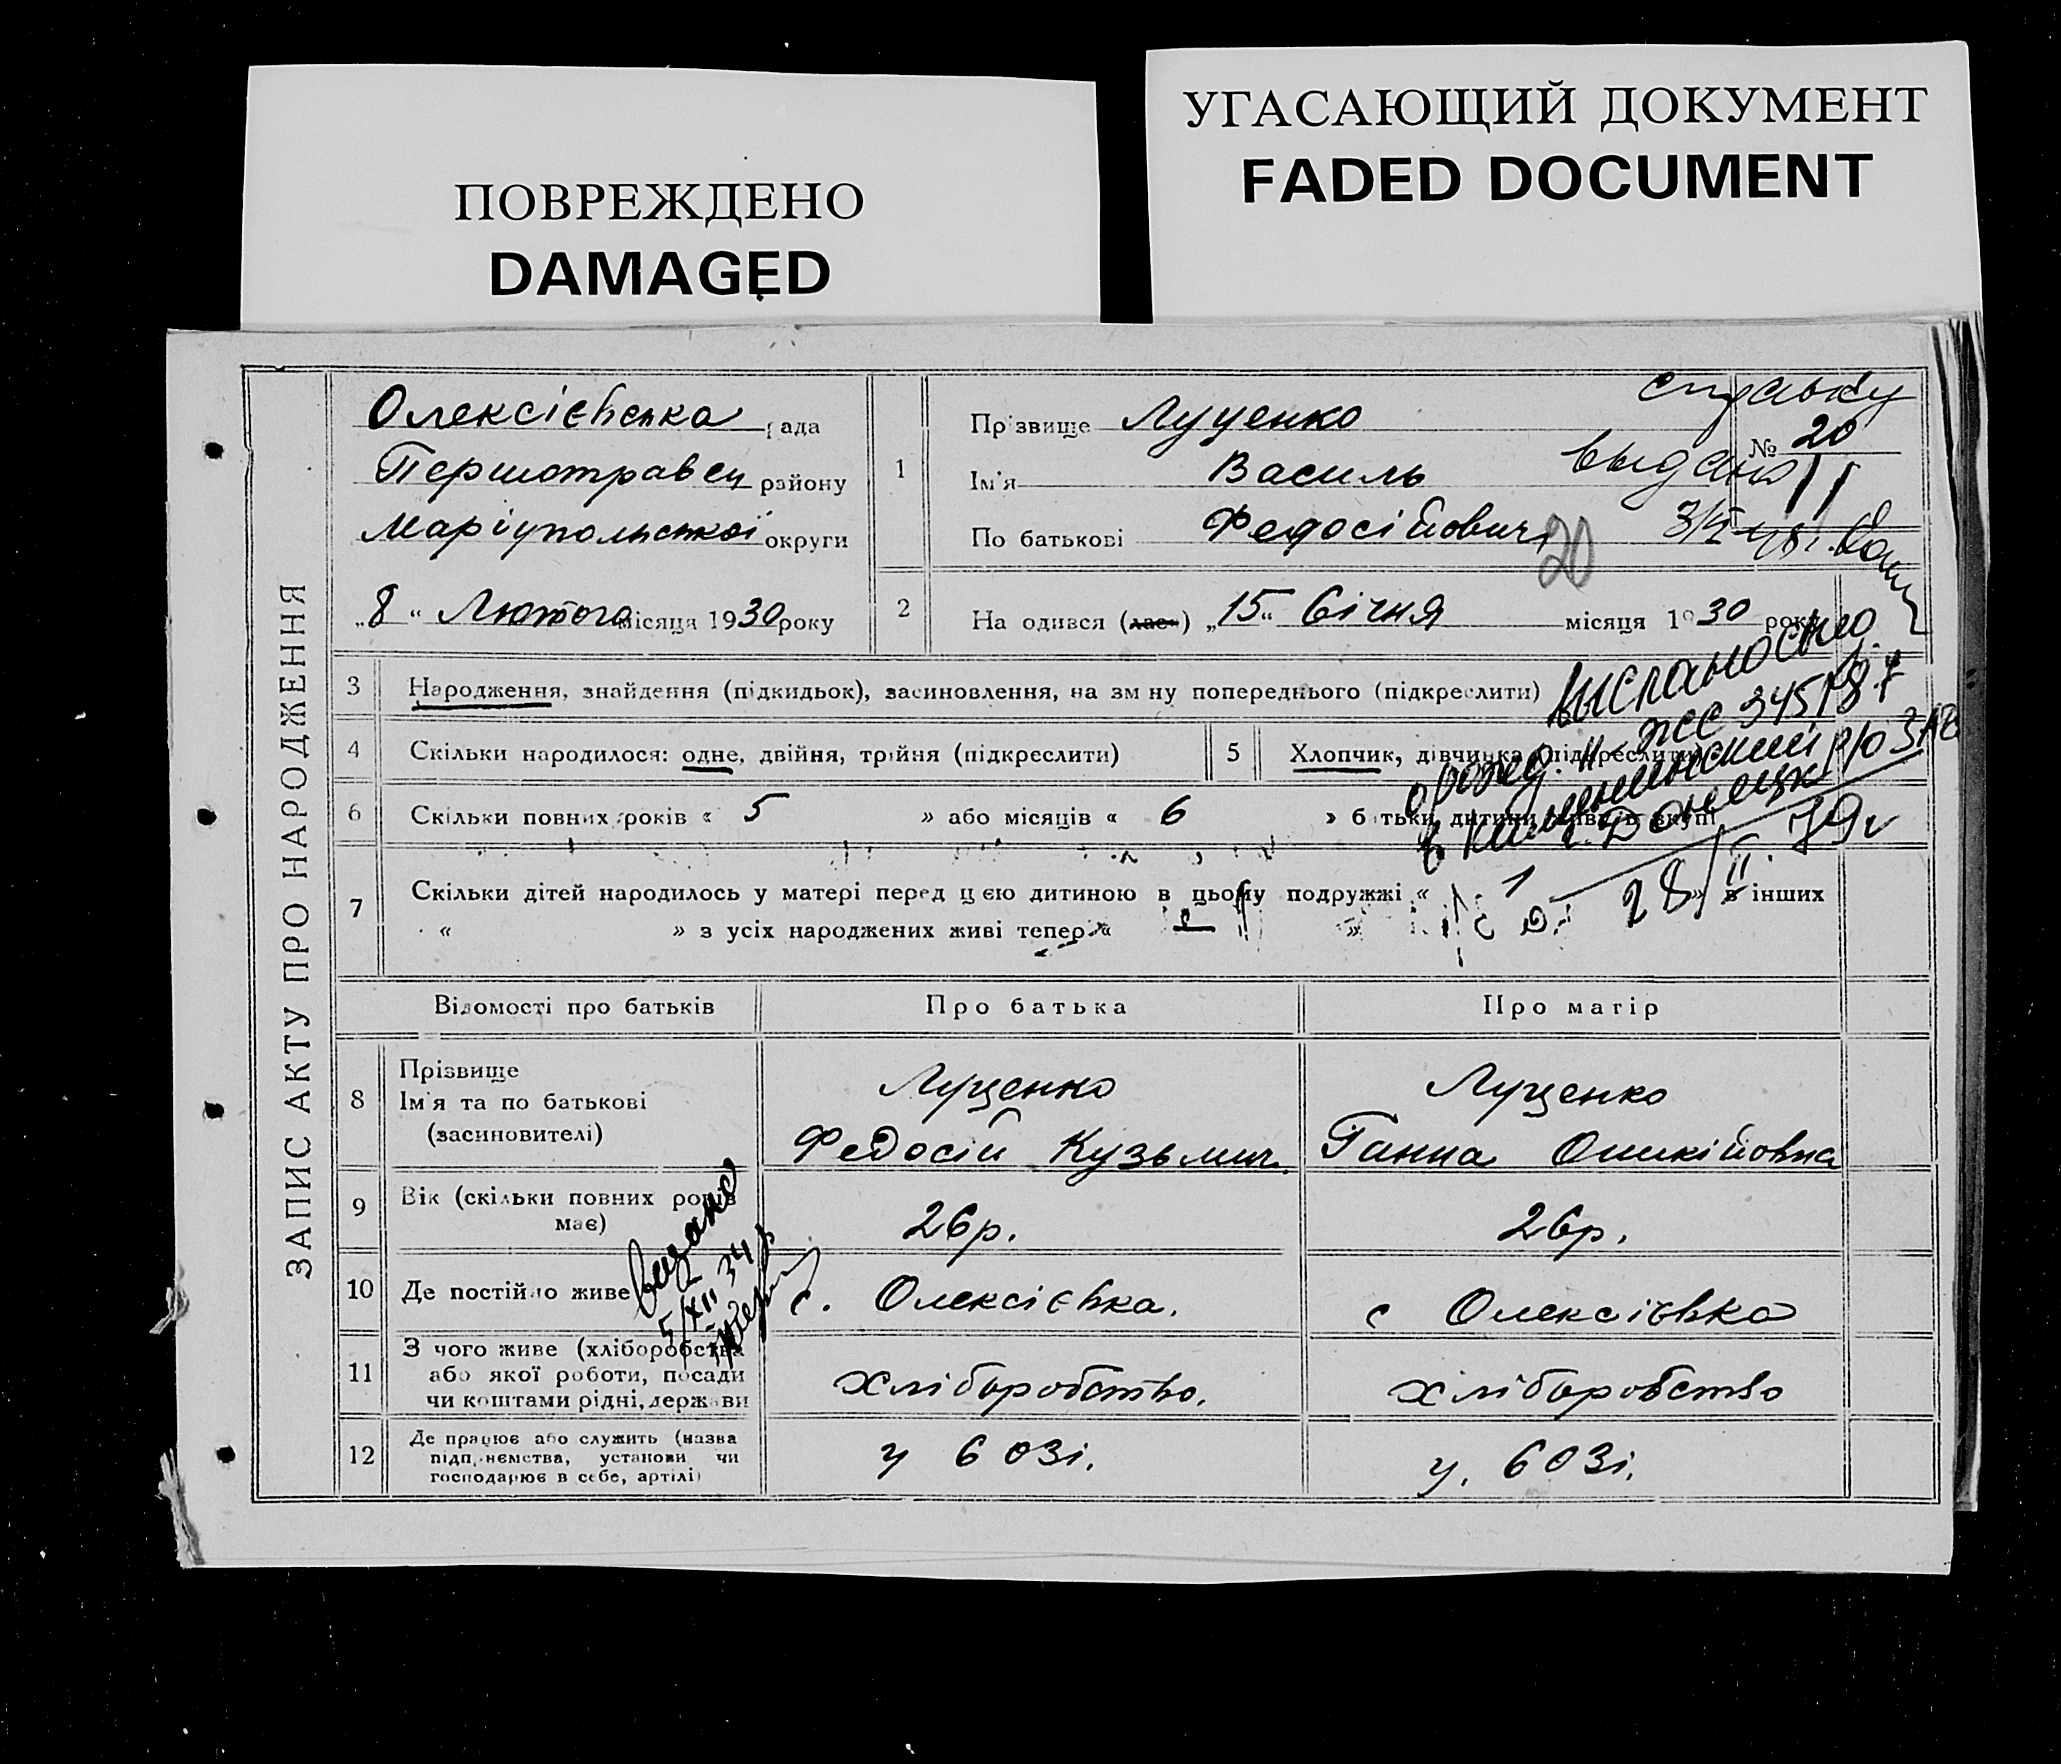 ПОВРЕЖДЕНО
DAMAGED
УГАСАЮЩИЙ ДОКУМЕНТ
FADED DOCUMENT
ЗАПИС АКТУ ПРО НАРОДЖЕННЯ
Олексієвська рада
Першотравен району
Маріупольської округи
„8“ Лютого місяця 1930 року
1
Прізвище Луценко
Ім'я Василь
По батькові Федосійович
справку
№ 20
выдано
20
2
На одився (лась) „15“ Січня місяця 1930 року
3
Народження, знайдення (підкидьок), засиновлення, на зм ну попереднього (підкреслити)
выслано
4
Скільки народилося: одне, двійня, трійня (підкреслити)
5
Хлопчик, дівчинка (підкреслити)
о рожд. II-ЖС 345787
в р/о ЗАГС
г. Донецк
28/II.79г
6
Скільки повних років « 5 » або місяців « 6 » батьки дитини живуть вкупі
7
Скільки дітей народилось у матері перед цією дитиною в цьому подружжі « 1 » в інших
« » з усіх народжених живі тепер « »
Відомості про батьків
Про батька
Про матір
8
Прізвище
Ім'я та по батькові
(засиновителі)
Луценко
Федосій Кузьмич.
Луценко
Ганна
9
Вік (скільки повних років
має)
26р.
26р.
10
Де постійно живе
с. Олексієвка.
с Олексієвка
видано
5/XII 34р
11
З чого живе (хліборобства
або якої роботи, посади
чи коштами рідні, держави
хліборобство.
хліборобство
12
Де працює або служить (назва
підп, нємства, установи чи
господарює в себе, артілі)
у созі.
у. созі.